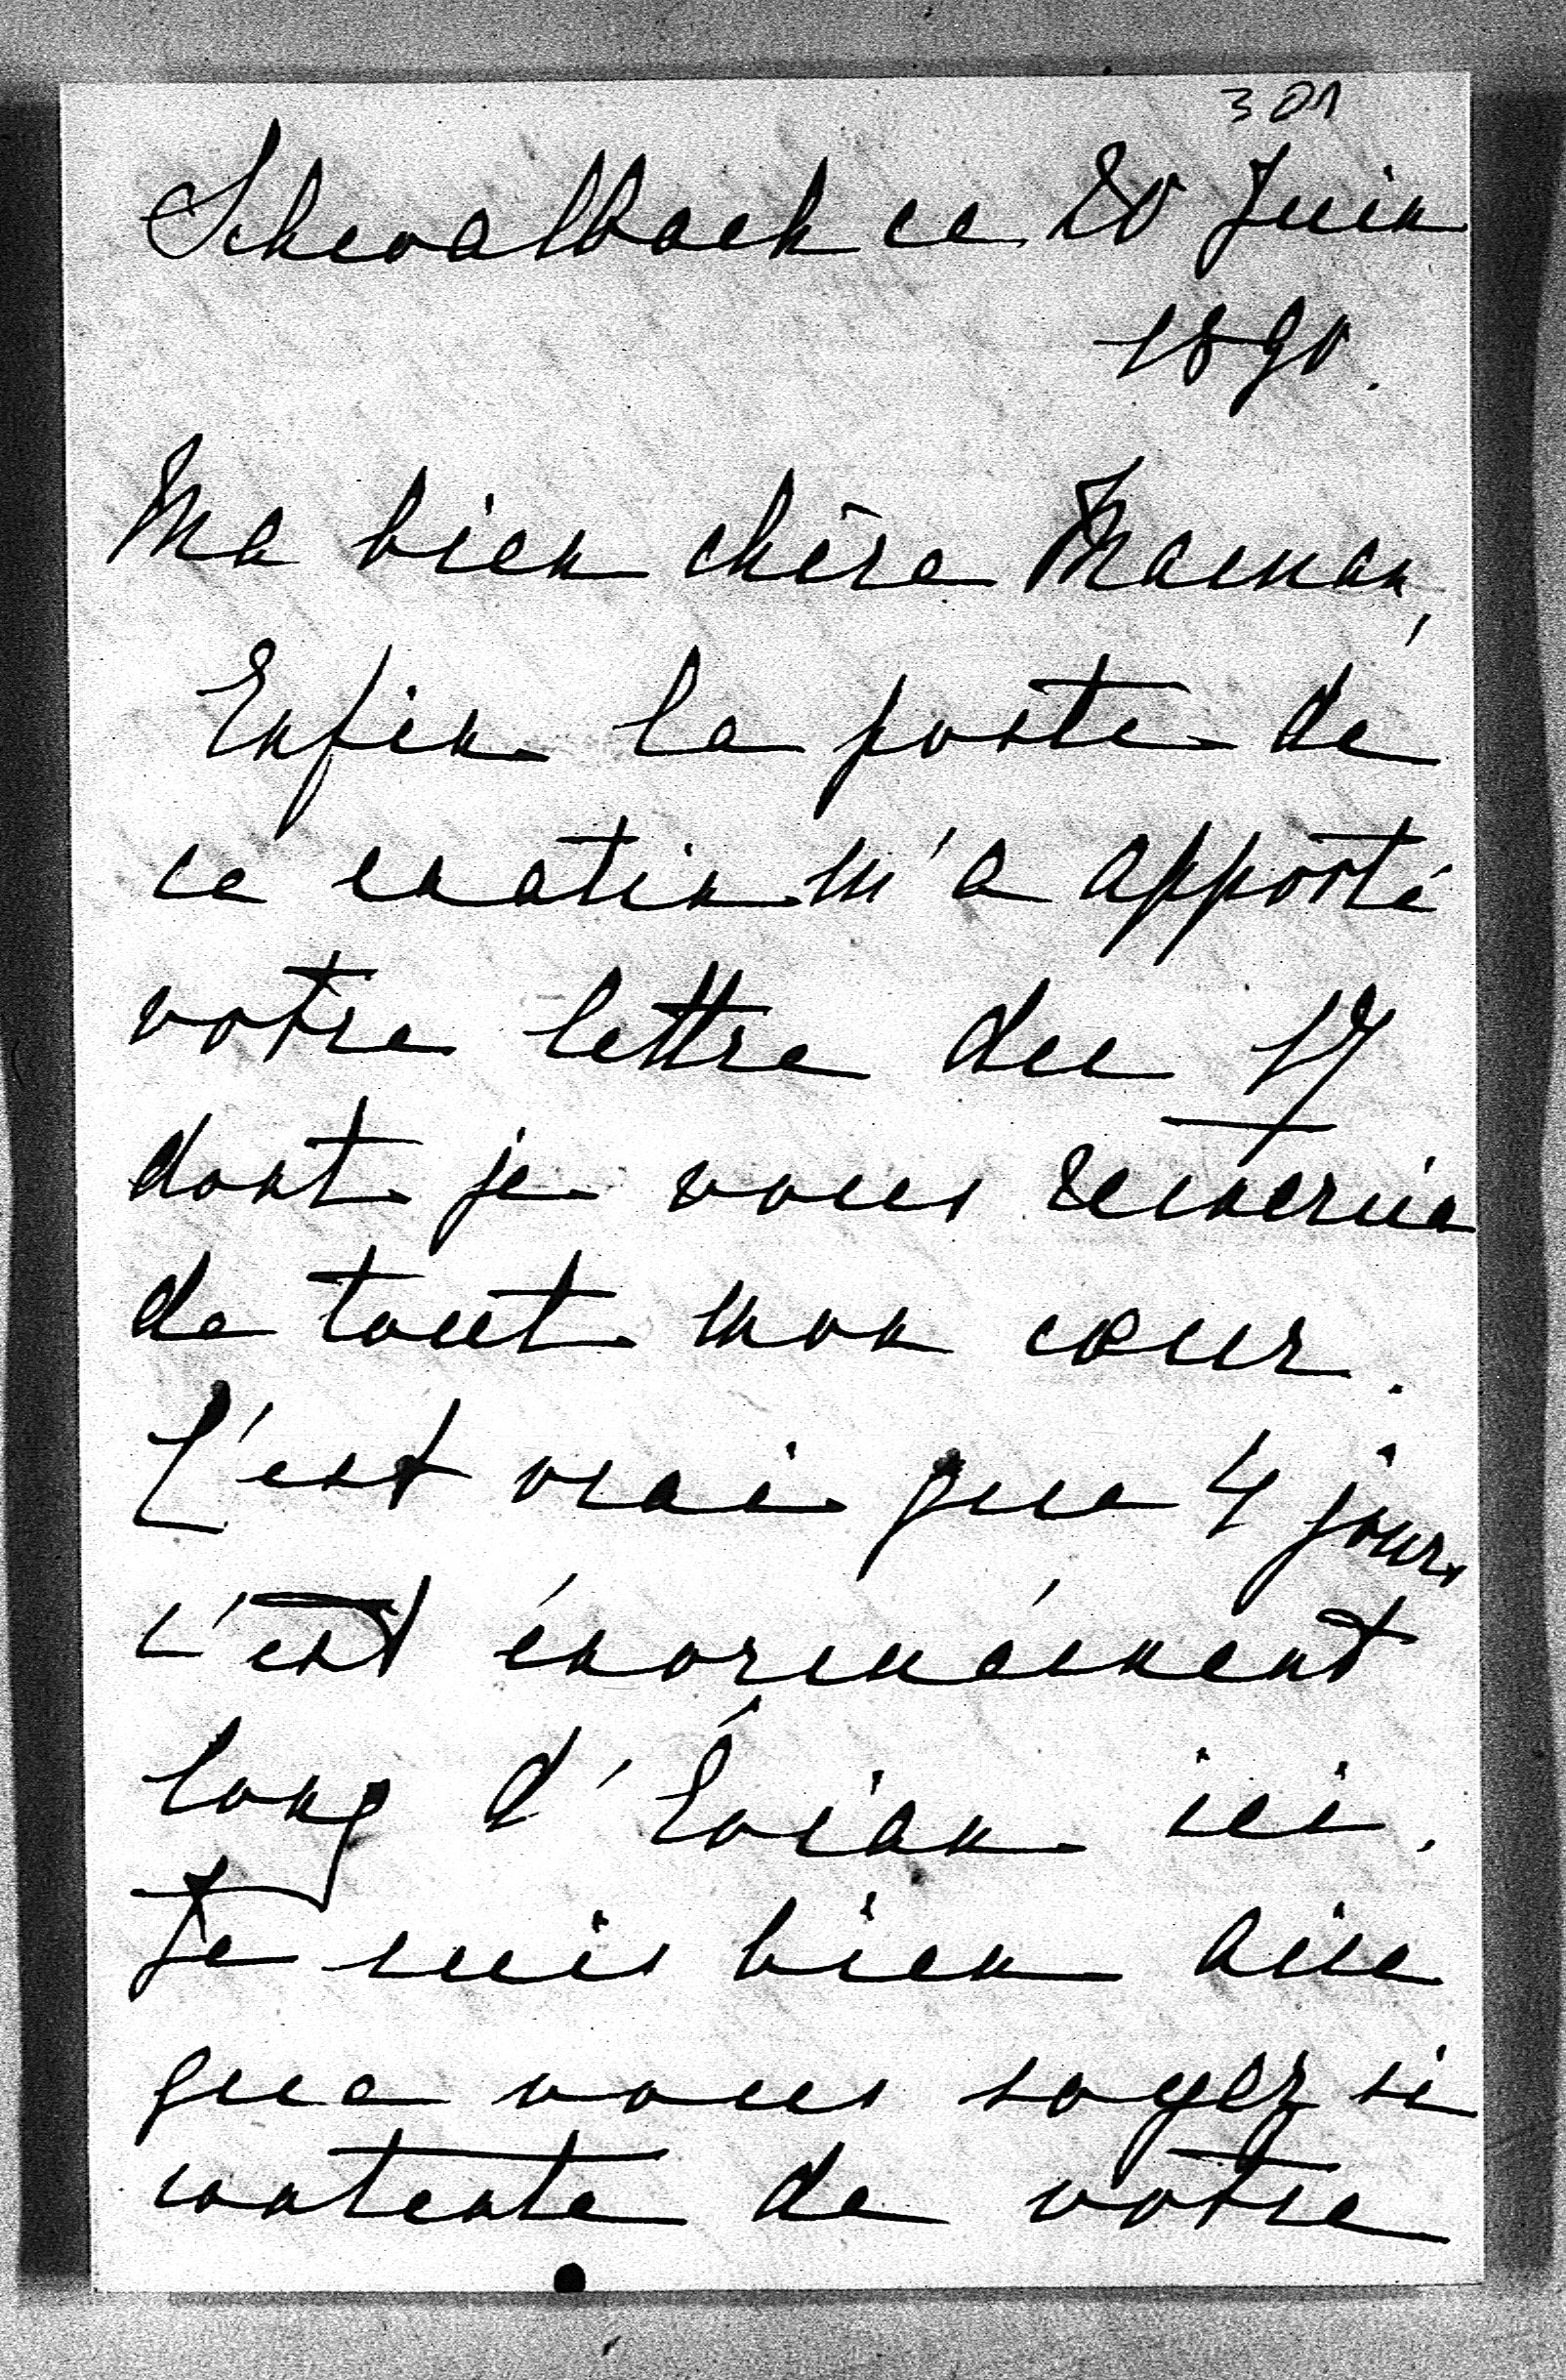 301
Schwalback ce 20 Juin
1890.
Ma bien chère Maman,
Enfin la poste de
ce matin m'a apporté
votre lettre du 17
dont je vous remercie
de tout mon cœur.
C'est vrai que 4 jours
c'est énormément
long d'Évian ici.
Je suis bien aise
que vous soyez si
contente de votre